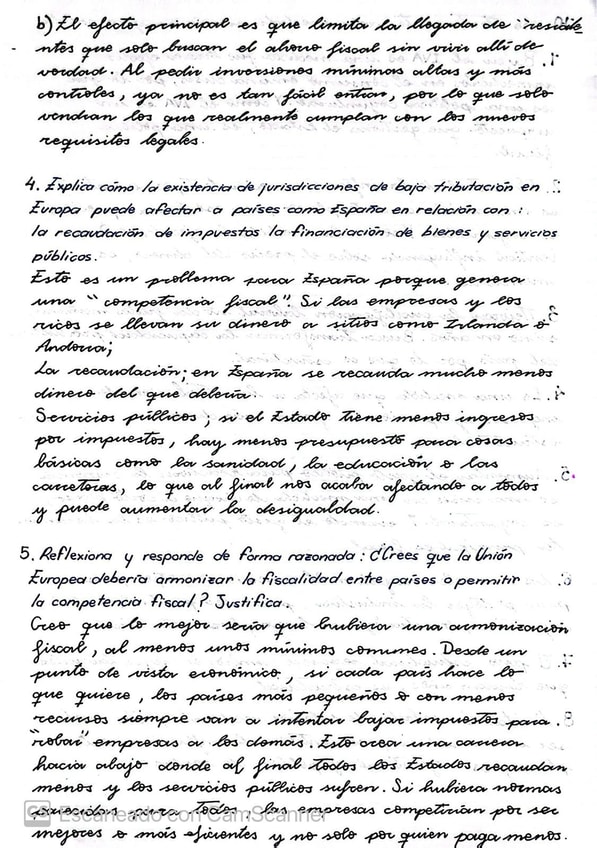 b) El efecto principal es que limita la llegada de "reside_
ntes que solo buscan el ahorro fiscal sin vivir allí de
verdad. Al pedir inversiones mínimas altas y más
controles, ya no es tan fácil entrar, por lo que solo
vendrían los que realmente cumplan con los nuevos
requisitos legales.
4. Explica cómo la existencia de jurisdicciones de baja tributación en
Europa puede afectar a países como España en relación con:
la recaudación de impuestos la financiación de bienes y servicios
públicos.
Esto es un problema para España porque genera
una "competencia fiscal". Si las empresas y los
ricos se llevan su dinero a sitios como Irlanda o
Andorra;
La recaudación; en España se recauda mucho menos
dinero del que debería.
Servicios públicos; si el Estado tiene menos ingresos
por impuestos, hay menos presupuesto para cosas
básicas como la sanidad, la educación o las
carreteras, lo que al final nos acaba afectando a todos
y puede aumentar la desigualdad.
5. Reflexiona y responde de forma razonada: ¿Crees que la Unión
Europea debería armonizar la fiscalidad entre países o permitir
la competencia fiscal? Justifica.
Creo que lo mejor sería que hubiera una armonización
fiscal, al menos unos mínimos comunes. Desde un
punto de vista económico, si cada país hace lo
que quiere, los países más pequeños o con menos
recursos siempre van a intentar bajar impuestos para
"robar" empresas a los demás. Esto crea una carrera
hacia abajo donde al final todos los Estados recaudan
menos y los servicios públicos sufren. Si hubiera normas
parecidas para todos, las empresas competirían por ser
mejores o más eficientes y no solo por quien paga menos.
CS Escaneado con CamScanner